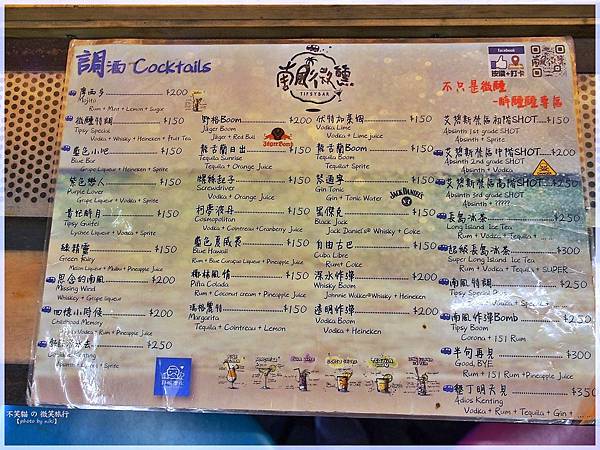 調酒 Cocktails
南風微醺
TIPSYBAR
facebook
按讚+打卡
不只是微醺
一時醺醺專區
摩西多 $200
Mojito
Rum + Mint + Lemon + Sugar
微醺特調 $150
Tipsy Special
Vodka + Whisky + Heineken + Fruit Tea
藍色小吧 $150
Blue Bar
Grape Liqueur + Heineken + Sprite
紫色戀人 $150
Purple Lover
Grape Liqueur + Vodka + Sprite
昔妃醉月 $150
Tipsy Guifei
Lychee Liqueur + Vodka + Sprite
綠精靈 $150
Green Fairy
Melon Liqueur + Malibu + Pineapple Juice
思念的南風 $200
Missing Wind
Whiskey + Grape liqueur
回憶小時候 $200
Childhood Memory
Vodka + Rum + Pineapple Juice
$250
野格Boom $200
Jäger Boom
Jäger + Red Bull
JägerBomb
龍舌蘭日出 $150
Tequila Sunrise
Tequila + Orange Juice
螺絲起子 $150
Screwdriver
Vodka + Orange Juice
柯夢波丹 $150
Cosmopolitan
Vodka + Cointreau + Cranberry Juice
藍色夏威夷 $150
Blue Hawaii
Rum + Blue Curaçao Liqueur + Pineapple Juice
椰林風情 $150
Piña Colada
Rum + Coconut cream + Pineapple Juice
瑪格麗特 $150
Margarita
Tequila + Cointreau + Lemon
伏特加萊姆 $150
Vodka Lime
Vodka + Lime juice
龍舌蘭Boom $150
Tequila Boom
Tequila + Sprite
琴通寧 $150
Gin Tonic
Gin + Tonic Water
JACK DANIEL'S
黑傑克 $150
Black Jack
Jack Daniel's Whisky + Coke
自由古巴 $150
Cuba Libre
Rum + Coke
深水炸彈 $150
Whisky Boom
Johnnie Walker Whisky + Heineken
透明炸彈 $200
Vodka Boom
Vodka + Heineken
艾碧斯禁區初階SHOT $150
Absinth 1st grade SHOT
Absinth + Sprite
艾碧斯禁區中階SHOT $200
Absinth 2nd grade SHOT
Absinth + Vodka
艾碧斯禁區高階SHOT $250
Absinth 3rd grade SHOT
Absinth + ?????
長島冰茶 $250
Long Island Ice Tea
Rum + Vodka + Tequila
超級長島冰茶 $300
Super Long Island Ice Tea
Rum + Vodka + Tequila + SUPER
南風特調 $250
Tipsy Special
Vodka + Special
南風炸彈Bomb $250
Tipsy Boom
Corona + Rum 151
半句再見 $300
Good, BYE
Rum + 151 Rum + Pineapple Juice
墾丁明天見 $350
Adios Kenting
Vodka + Rum + Tequila + Gin +
不笑貓 の 微笑旅行
【photo by niki】